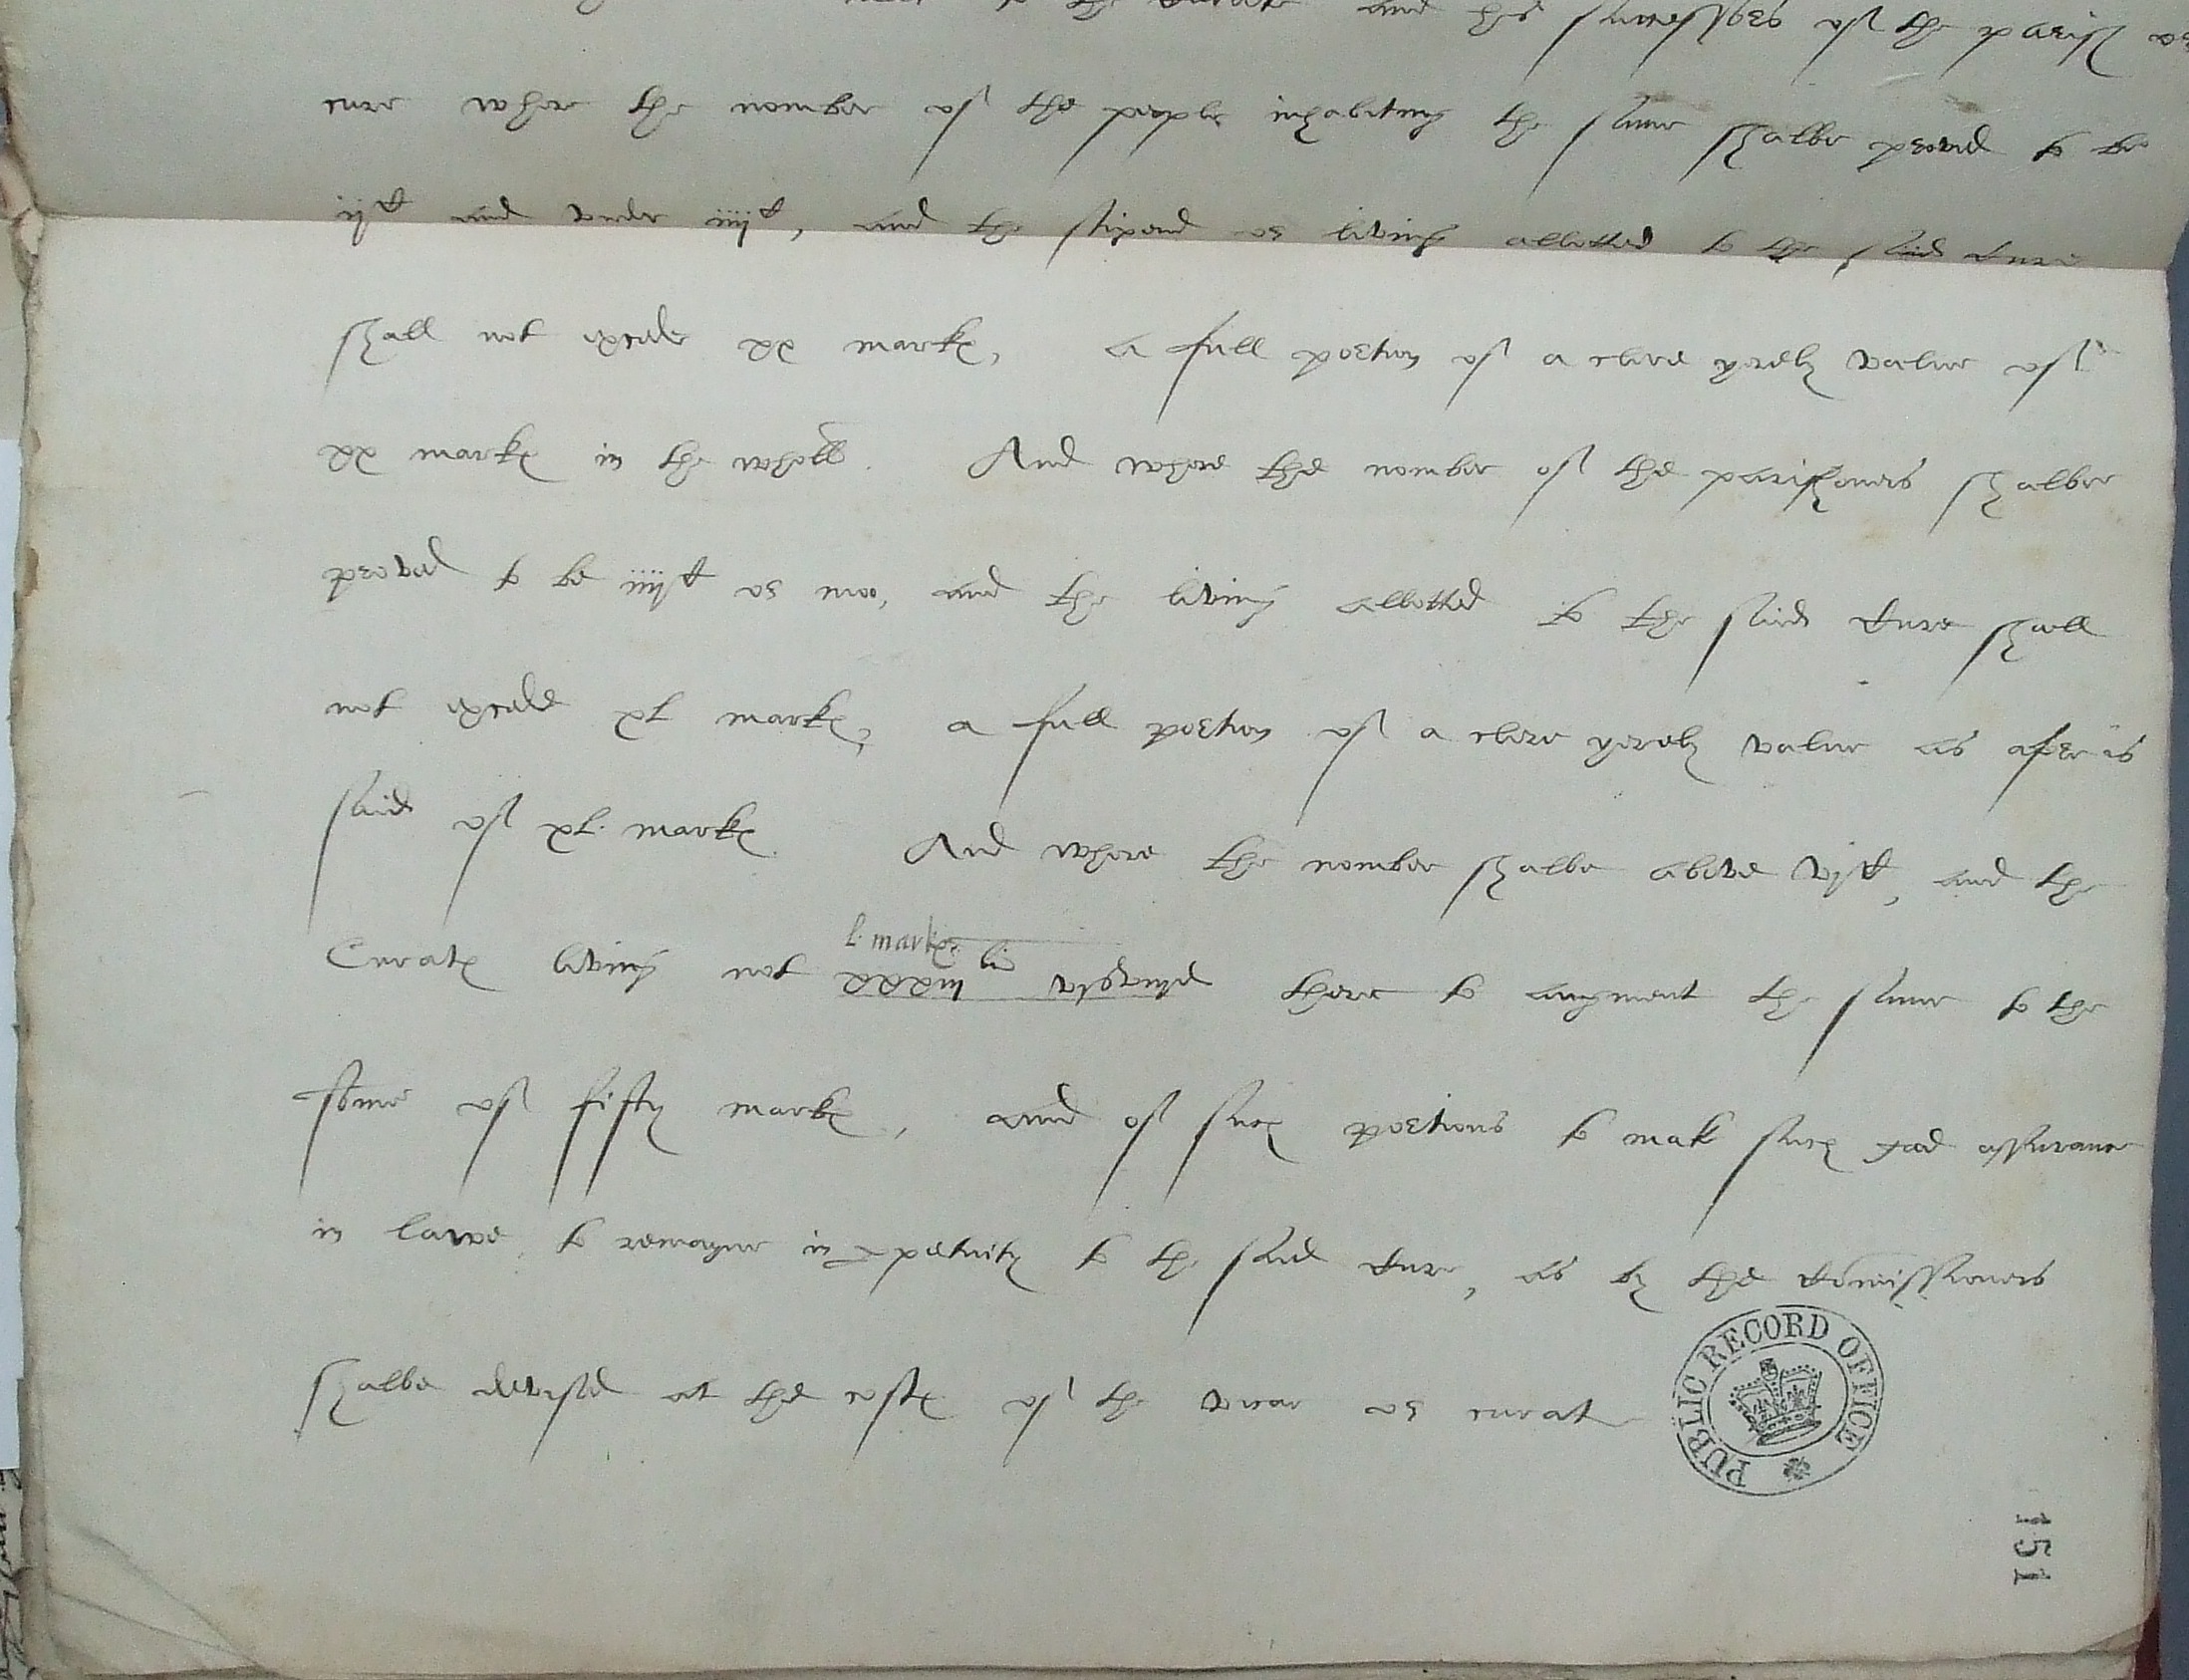 to the Curate and his successors of the
cure where the nomber of the people inhabiting the same shalbe proved to be
iijC and under iiijC, and the stipend or living allotted to the said cure
shall not excede xx markes, a full portion of a clere yerely value of
xx markes in the wholle. And where the nomber of the parishoners shalbe
proved to be iiijC or moo, and the living allotted to the said cure shall
not excede xl markes, a full portion of a clere yerely value as afore is
said of xl. markes. And where the nomber shalbe above vjC, and the
l. markes
Curates living not xxxiij li vjs viijd there to augment the same to the
some of fifty markes, and of such portions to mak such god assurance
in lawe to remayne in perpetuity to the said cure, as by the comissioners
shalbe devised at the costes of the vicar or curat
PUBLIC RECORD OFFICE
151